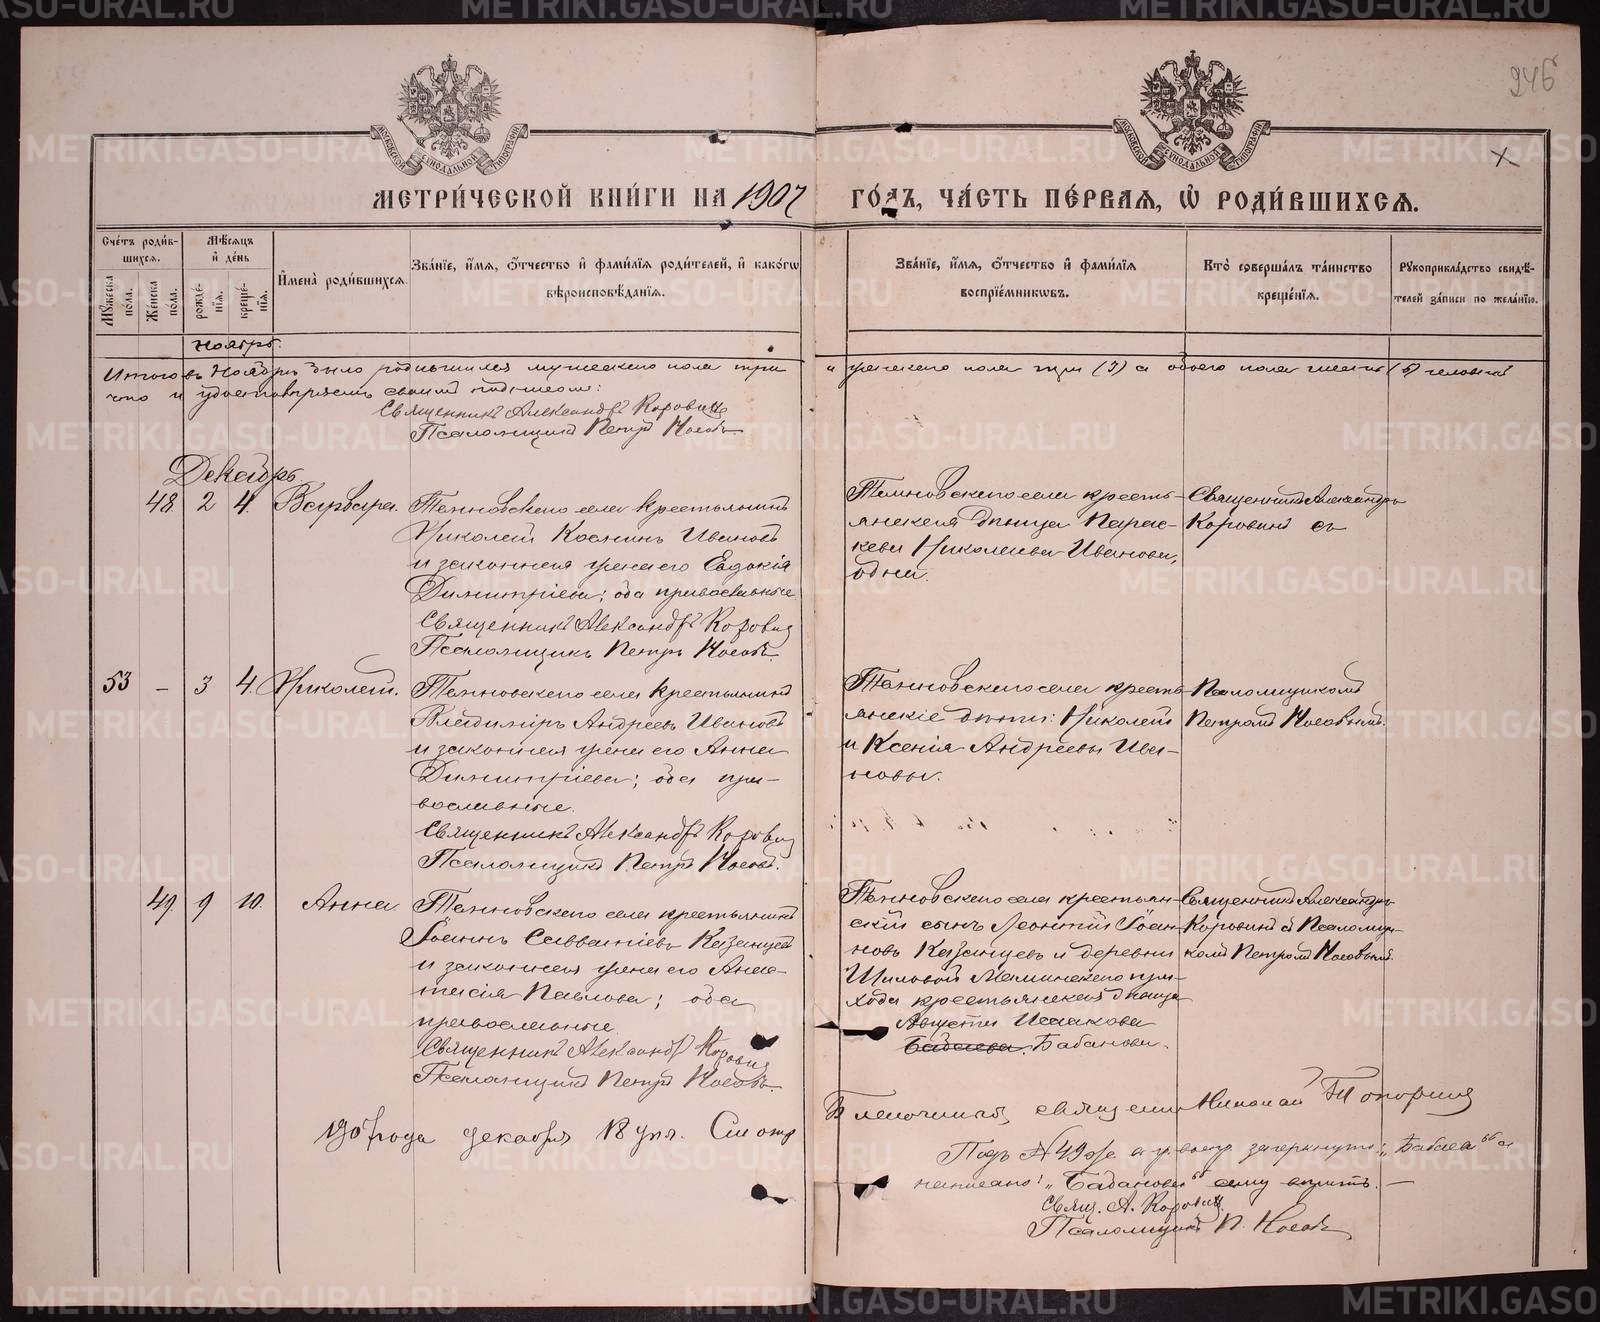 246
МОСКОВСКОЙ СѴНОДАЛЬНОЙ ТИПОГРАФІИ
МОСКОВСКОЙ СѴНОДАЛЬНОЙ ТИПОГРАФІИ
МЕТРИ́ЧЕСКОЙ КНИ́ГИ НА 1907 ГО́ДЪ, ЧА́СТЬ ПЕ́РВАЯ, Ѡ РОДИ́ВШИХСѦ.
Сче́тъ роди́в-
шихсѧ.
Мꙋ́жеска по́ла.
Же́нска по́ла.
Мѣ́сѧцъ
и҆ де́нь
рожде́-
нїѧ.
креще́-
нїѧ.
И҆мена̀ роди́вшихсѧ.
Зва́нїе, и҆́мѧ, ѻ҆́тчество и҆ фами́лїѧ роди́телей, и҆ како́гѡ
вѣроисповѣ́данїѧ.
Зва́нїе, и҆́мѧ, ѻ҆́тчество и҆ фами́лїѧ
воспрїе́мникѡвъ.
Кто̀ соверша́лъ та́инство
креще́нїѧ.
Рꙋкоприкла́дство свидѣ́-
телей за́писи по жела́нїю.
Ноябрь.
Итого въ Ноябрѣ было родившихся мужескаго пола три и женскаго пола три (3) а обоего пола шесть (6) человѣкъ
что и удостовѣряемъ своимъ подписомъ:
Священникъ Александръ Коровинъ
Псаломщикъ Петръ Носовъ.
Декабрь.
48 2 4 Варвара.
Темновскаго села крестьянинъ
Николай Косминъ Ивановъ
и законная жена его Евдокія
Димитріева; оба православные
Священникъ Александръ Коровинъ
Псаломщикъ Петръ Носовъ.
Темновскаго села кресть-
янская дѣвица Парас-
кева Николаева Иванова,
одна.
Священникъ Александръ
Коровинъ съ
53 — 3 4. Николай.
Темновскаго села крестьянинъ
Владиміръ Андреевъ Ивановъ
и законная жена его Анна
Димитріева; оба пра-
вославные.
Священникъ Александръ Коровинъ
Псаломщикъ Петръ Носовъ.
Темновскаго села кресть-
янскіе дѣти: Николай
и Ксенія Андреевы Ива-
новы.
Псаломщикомъ
Петромъ Носовымъ.
49. 9 10. Анна.
Темновскаго села крестьянинъ
Іоаннъ Савватіевъ Казанцевъ
и законная жена его Анас-
тасія Павлова; оба
православные.
Священникъ Александръ Коровинъ
Псаломщикъ Петръ Носовъ.
Темновскаго села крестьян-
скій сынъ Леонтій Іоан-
новъ Казанцевъ и деревни
Шиловой Маминскаго при-
хода крестьянская дѣвица
Августа Исакова
Бабаева. Бабанова.
Священникъ Александръ
Коровинъ съ Псаломщи-
комъ Петромъ Носовымъ.
1907 года декабря 18 дня. Смотр.
Благочинный, священникъ Николай Топорковъ
Подъ № 49 зачеркнуто: „Бабаева" а
написано: „Бабанова" сему вѣрить. —
Свящ. А. Коровинъ.
Псаломщикъ П. Носовъ